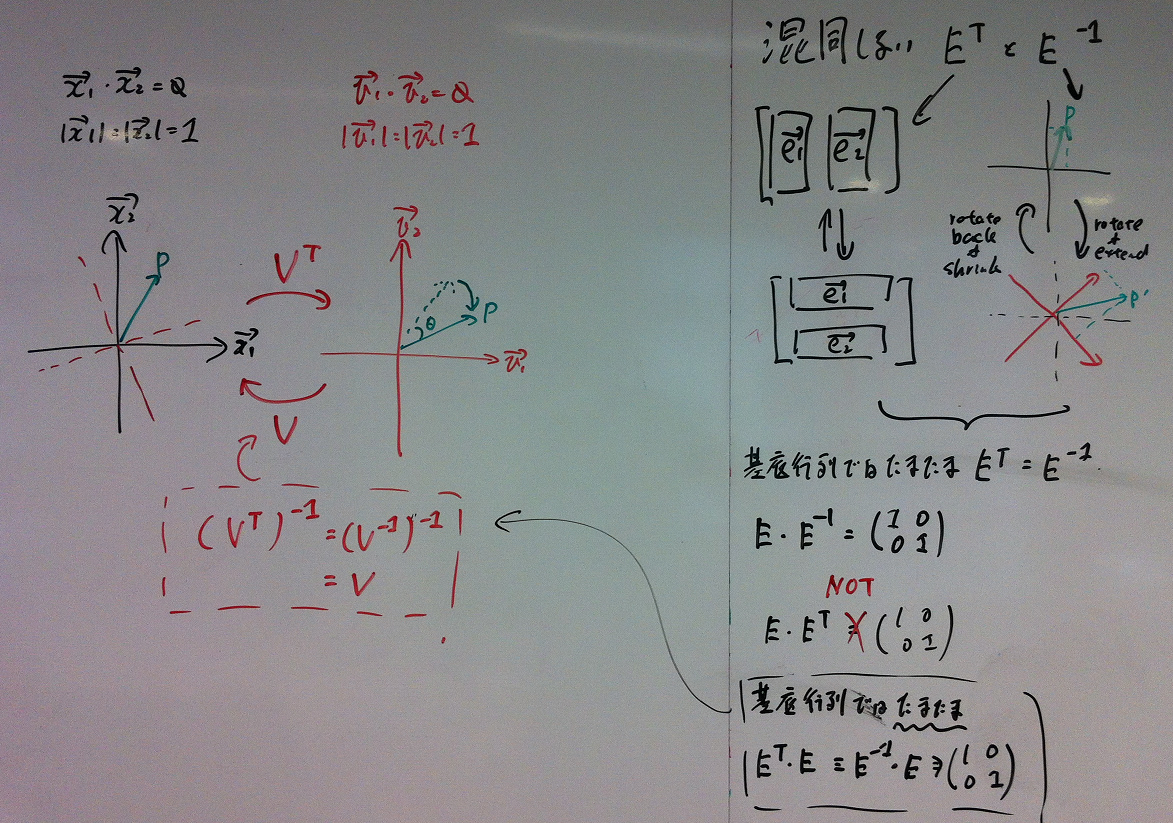 x₁→ · x₂→ = 0
|x₁→| = |x₂→| = 1
v₁→ · v₂→ = 0
|v₁→| = |v₂→| = 1
x₂→
P
x₁→
Vᵀ
V
v₂→
θ
P
v₁→
(Vᵀ)⁻¹ = (V⁻¹)⁻¹
= V
混同しない Eᵀ と E⁻¹
[e₁→ e₂→]
[e₁→
e₂→]
P
rotate
back
+
shrink
rotate
+
extend
P'
基底行列ではたまたま Eᵀ = E⁻¹
E · E⁻¹ = (1 0
0 1)
NOT
E · Eᵀ = (1 0
0 1)
基底行列ではたまたま
Eᵀ · E = E⁻¹ · E = (1 0
0 1)